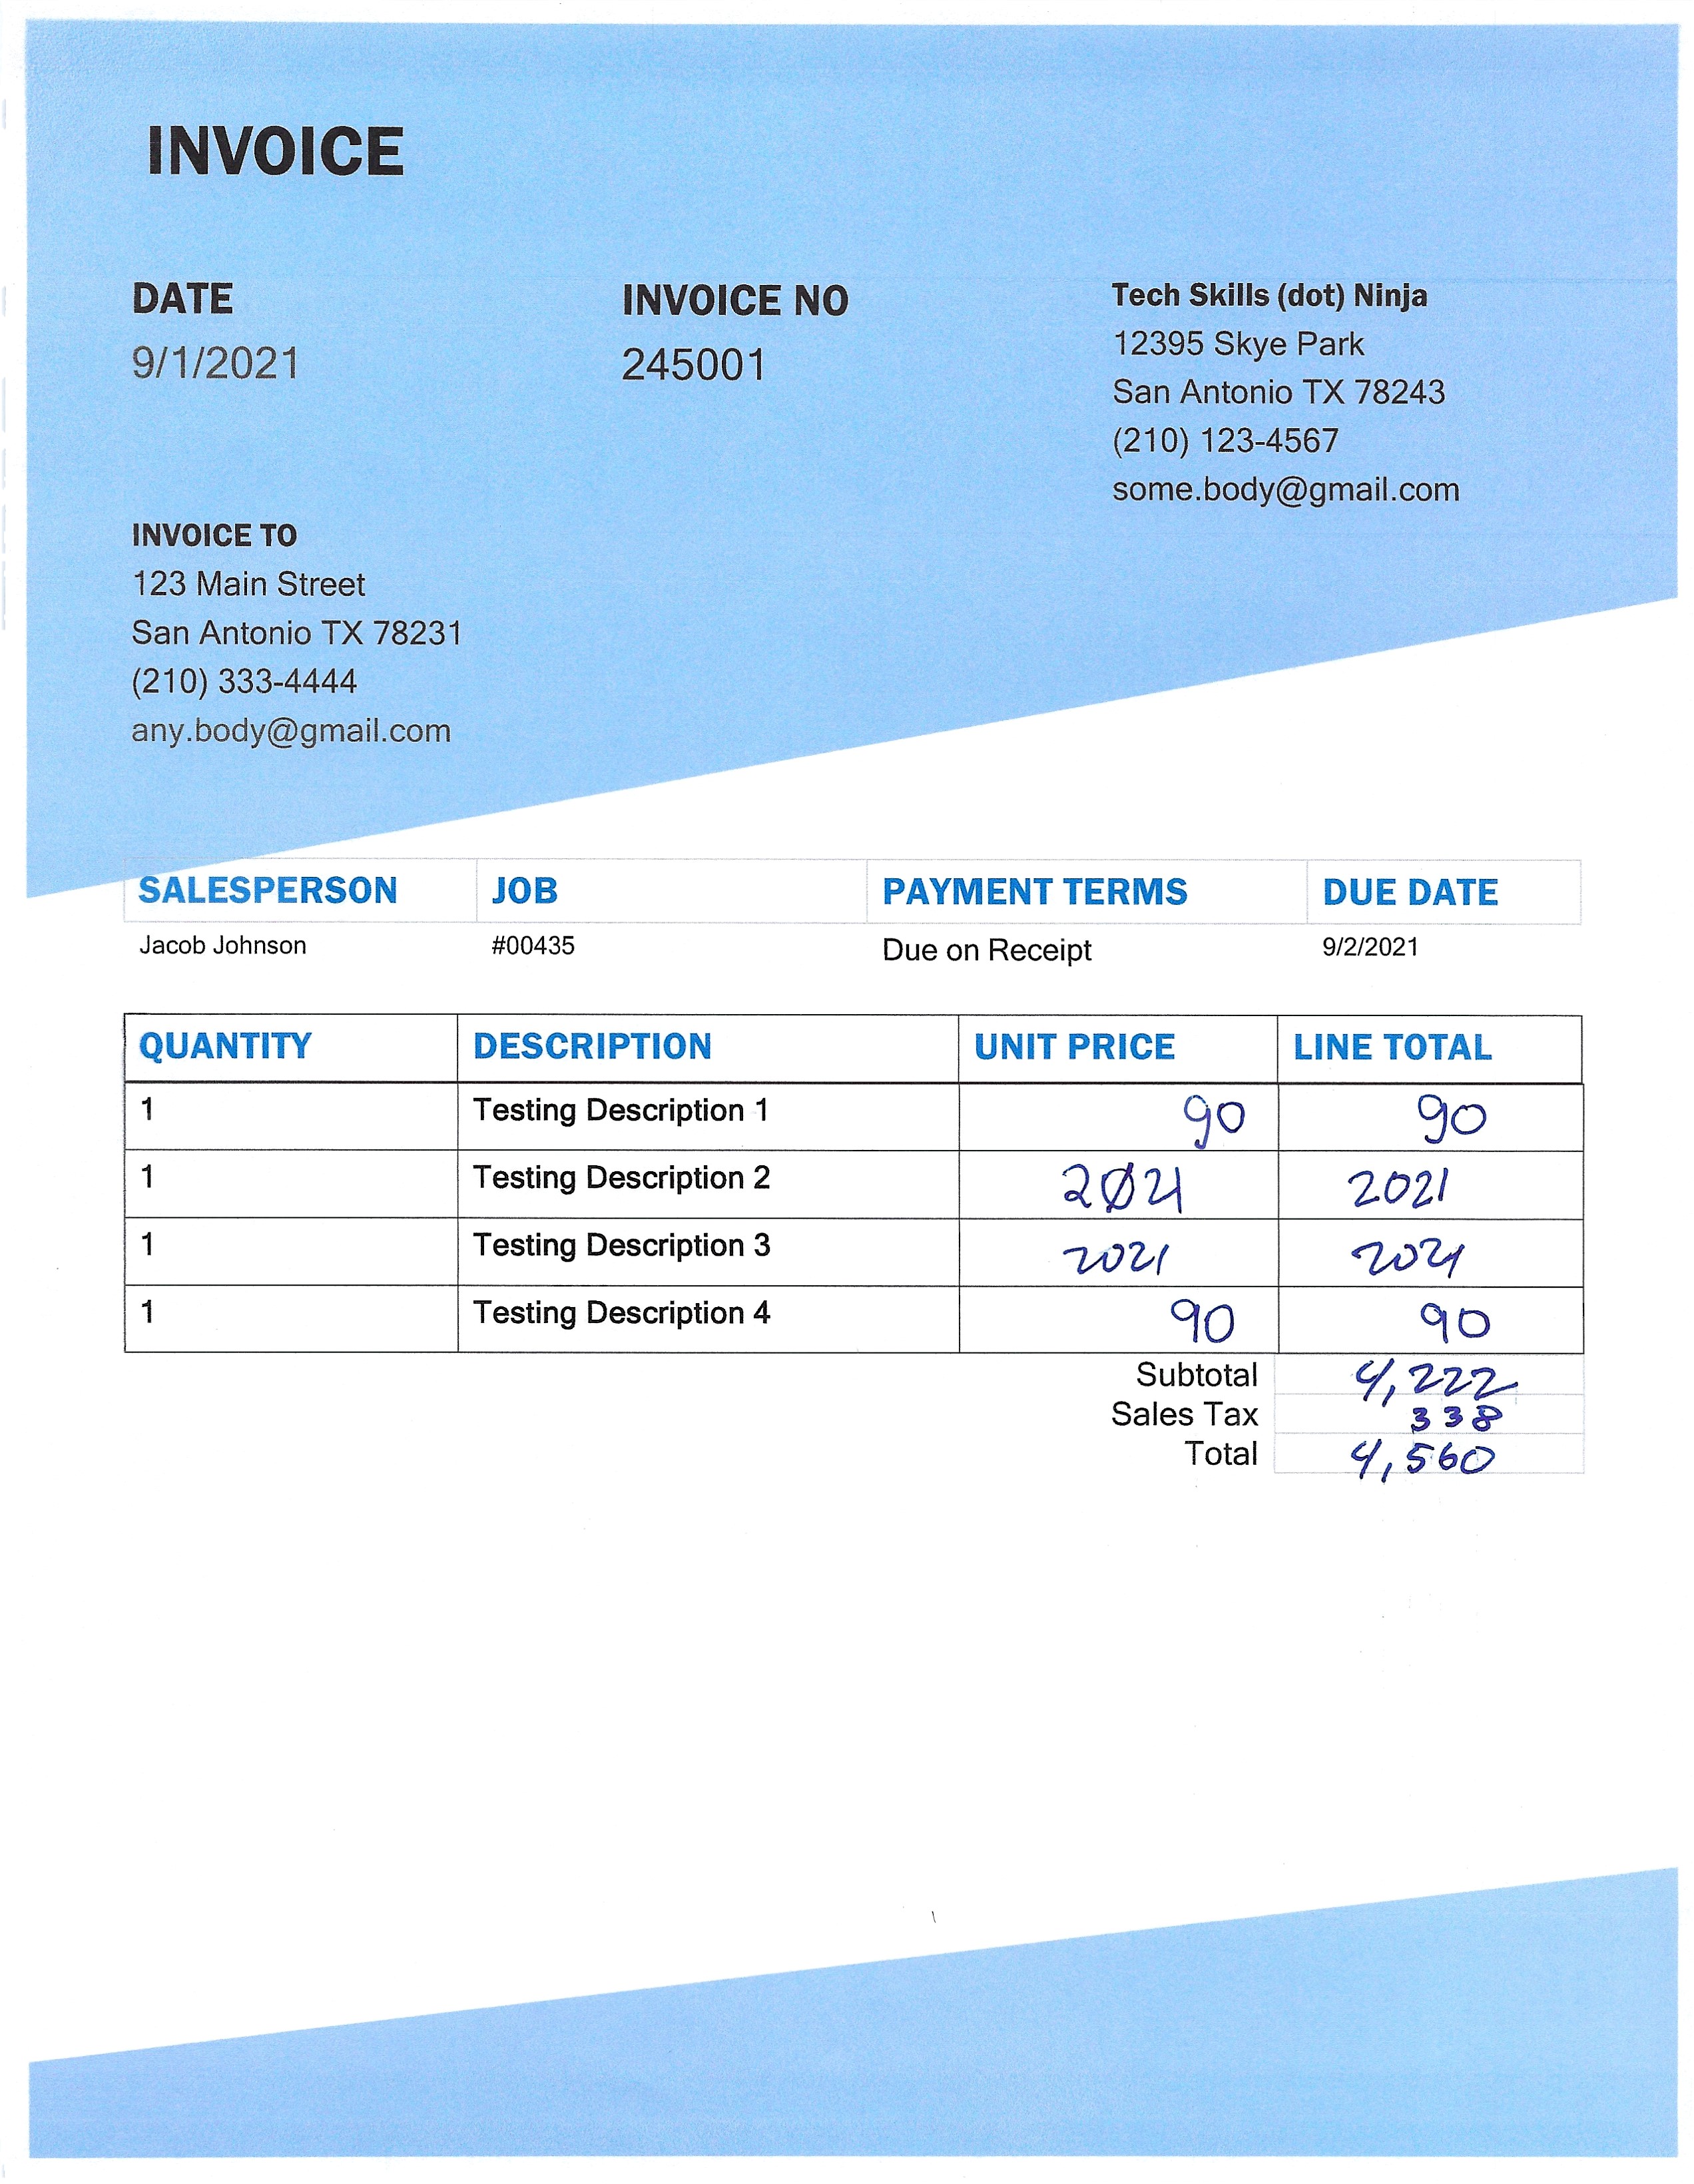 INVOICE
DATE
9/1/2021
INVOICE NO
245001
Tech Skills (dot) Ninja
12395 Skye Park
San Antonio TX 78243
(210) 123-4567
some.body@gmail.com
INVOICE TO
123 Main Street
San Antonio TX 78231
(210) 333-4444
any.body@gmail.com
SALESPERSON JOB PAYMENT TERMS DUE DATE
Jacob Johnson #00435 Due on Receipt 9/2/2021
QUANTITY DESCRIPTION UNIT PRICE LINE TOTAL
1 Testing Description 1 90 90
1 Testing Description 2 2021 2021
1 Testing Description 3 2021 2021
1 Testing Description 4 90 90
Subtotal 4,222
Sales Tax 338
Total 4,560